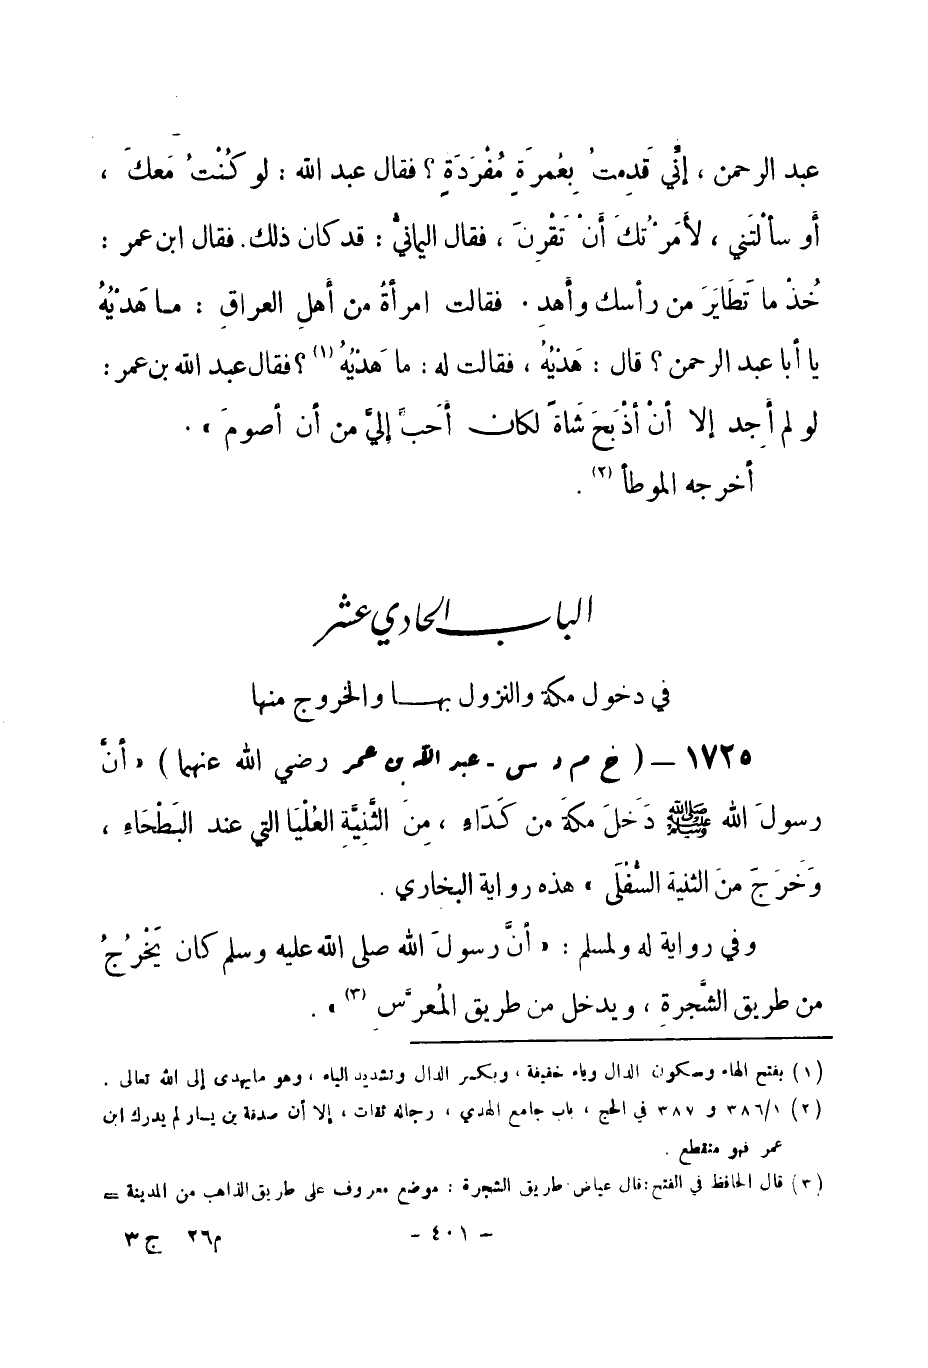 عبد الرحمن ، إنِّي قَدِمتُ بِعُمرَةٍ مُفْرَدَةٍ ؟ فقال عبد الله : لو كُنْتُ مَعكَ ،
أو سألْتَني ، لأمَرْتُكَ أنْ تَقْرِنَ ، فقال اليمانيُّ : قد كان ذلك. فقال ابن عمر :
خُذْ ما تَطَايَرَ من رأسك وأهدِ . فقالت امرأةٌ من أهل العراقِ : ما هَدْيُهُ
يا أبا عبد الرحمن ؟ قال : هَدْيُهُ ، فقالت له : ما هَدْيُهُ (١) ؟ فقال عبد الله بن عمر :
لو لم أجِد إلا أنْ أذْبَحَ شَاةً لكان أحَبَّ إليَّ من أن أصومَ » .
أخرجه الموطأ (٢) .
الباب الحادي عشر
في دخول مكة والنزول بها والخروج منها
١٧٢٥ – ( خ م د س - عبد الله بن عمر رضي الله عنهما ) « أنَّ
رسولَ الله ﷺ دَخَلَ مكَةَ من كَدَاءٍ ، مِنَ الثَّنِيَّةِ العُلْيَا التي عند البَطْحَاءِ ،
وَخَرَجَ منَ الثنية السُّفْلَى » هذه رواية البخاري .
وفي رواية له ولمسلم : « أنَّ رسولَ الله صلى الله عليه وسلم كان يَخْرُجُ
من طريق الشَّجرةِ ، ويدخل من طريق المُعرَّسِ (٣) » .
(١) بفتح الهاء وسكون الدال وياء خفيفة ، وبكسر الدال وتشديد الياء ، وهو ما يهدى إلى الله تعالى .
(٢) ٣٨٦/١ و ٣٨٧ في الحج ، باب جامع الهدي ، رجاله ثقات ، إلا أن صدقة بن يسار لم يدرك ابن
عمر فهو منقطع .
(٣) قال الحافظ في الفتح : قال عياض طريق الشجرة : موضع معروف على طريق الذاهب من المدينة =
- ٤٠١ - م٢٦ ج ٣